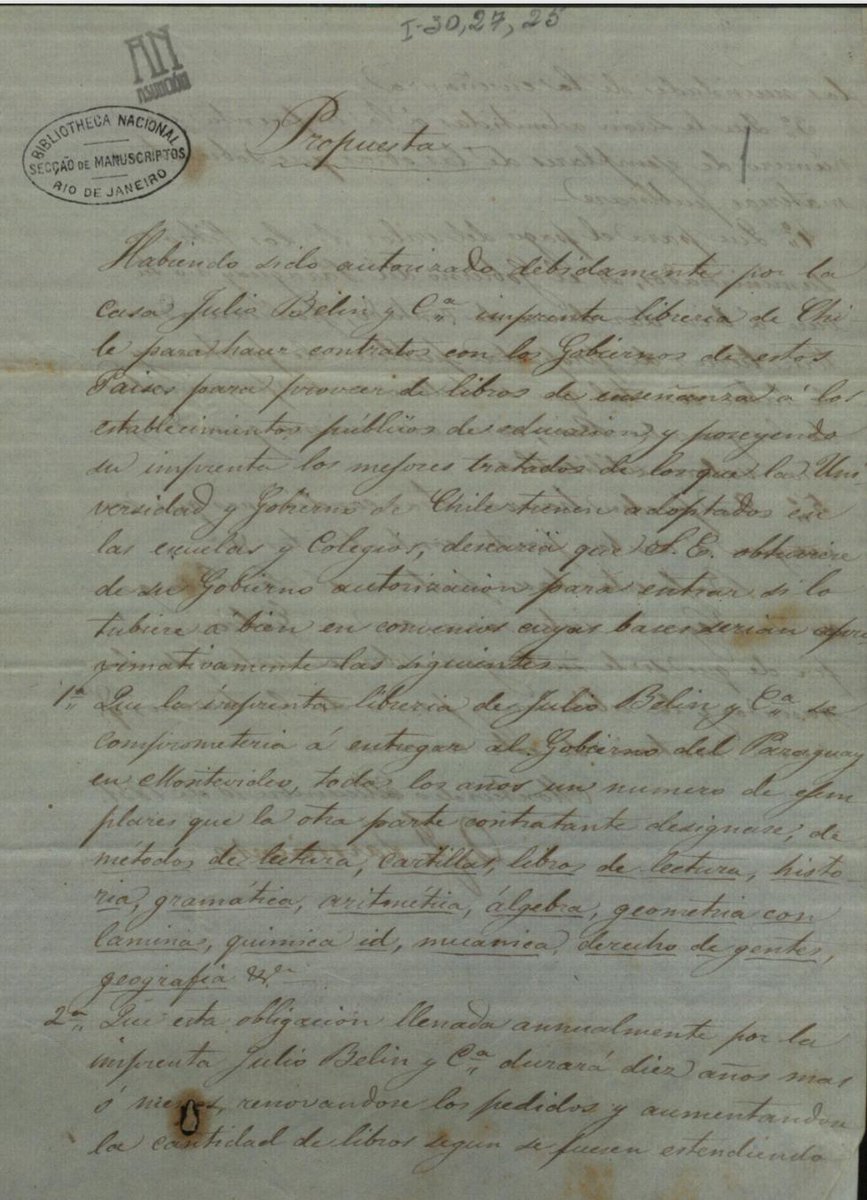 I-30,27,25
AN
ASUNCIÓN
BIBLIOTHECA NACIONAL
SECÇÃO DE MANUSCRIPTOS
RIO DE JANEIRO
Propuesta
1
Habiendo sido autorizado debidamente por la
casa Julio Belin y Cª imprenta libreria de Chi
le para hacer contratos con los Gobiernos de estos
Paises para proveer de libros de enseñanza á los
establecimientos públicos de educacion, y poseyendo
su imprenta los mejores tratados de los que la Uni
versidad y Gobierno de Chile tienen adoptados en
las escuelas y Colegios, desearia que S. E. obtuviere
de su Gobierno autorizacion para entrar si lo
tubiere á bien en convenios cuyas bases serian apro
ximativamente las siguientes
1ª Que la imprenta libreria de Julio Belin y Cª se
comprometeria á entregar al Gobierno del Paraguay
en Montevideo, todos los años un numero de ejem
plares que la otra parte contratante designase, de
métodos de lectura, cartillas, libros de lectura, histo
ria, gramática, aritmética, álgebra, geometria con
laminas, quimica id, mecanica, derecho de gentes,
geografia &ª
2ª Que esta obligacion llenada annualmente por la
imprenta Julio Belin y Cª durará diez años mas
ó menos, renovandose los pedidos y aumentandose
la cantidad de libros segun se fuesen estendiendo